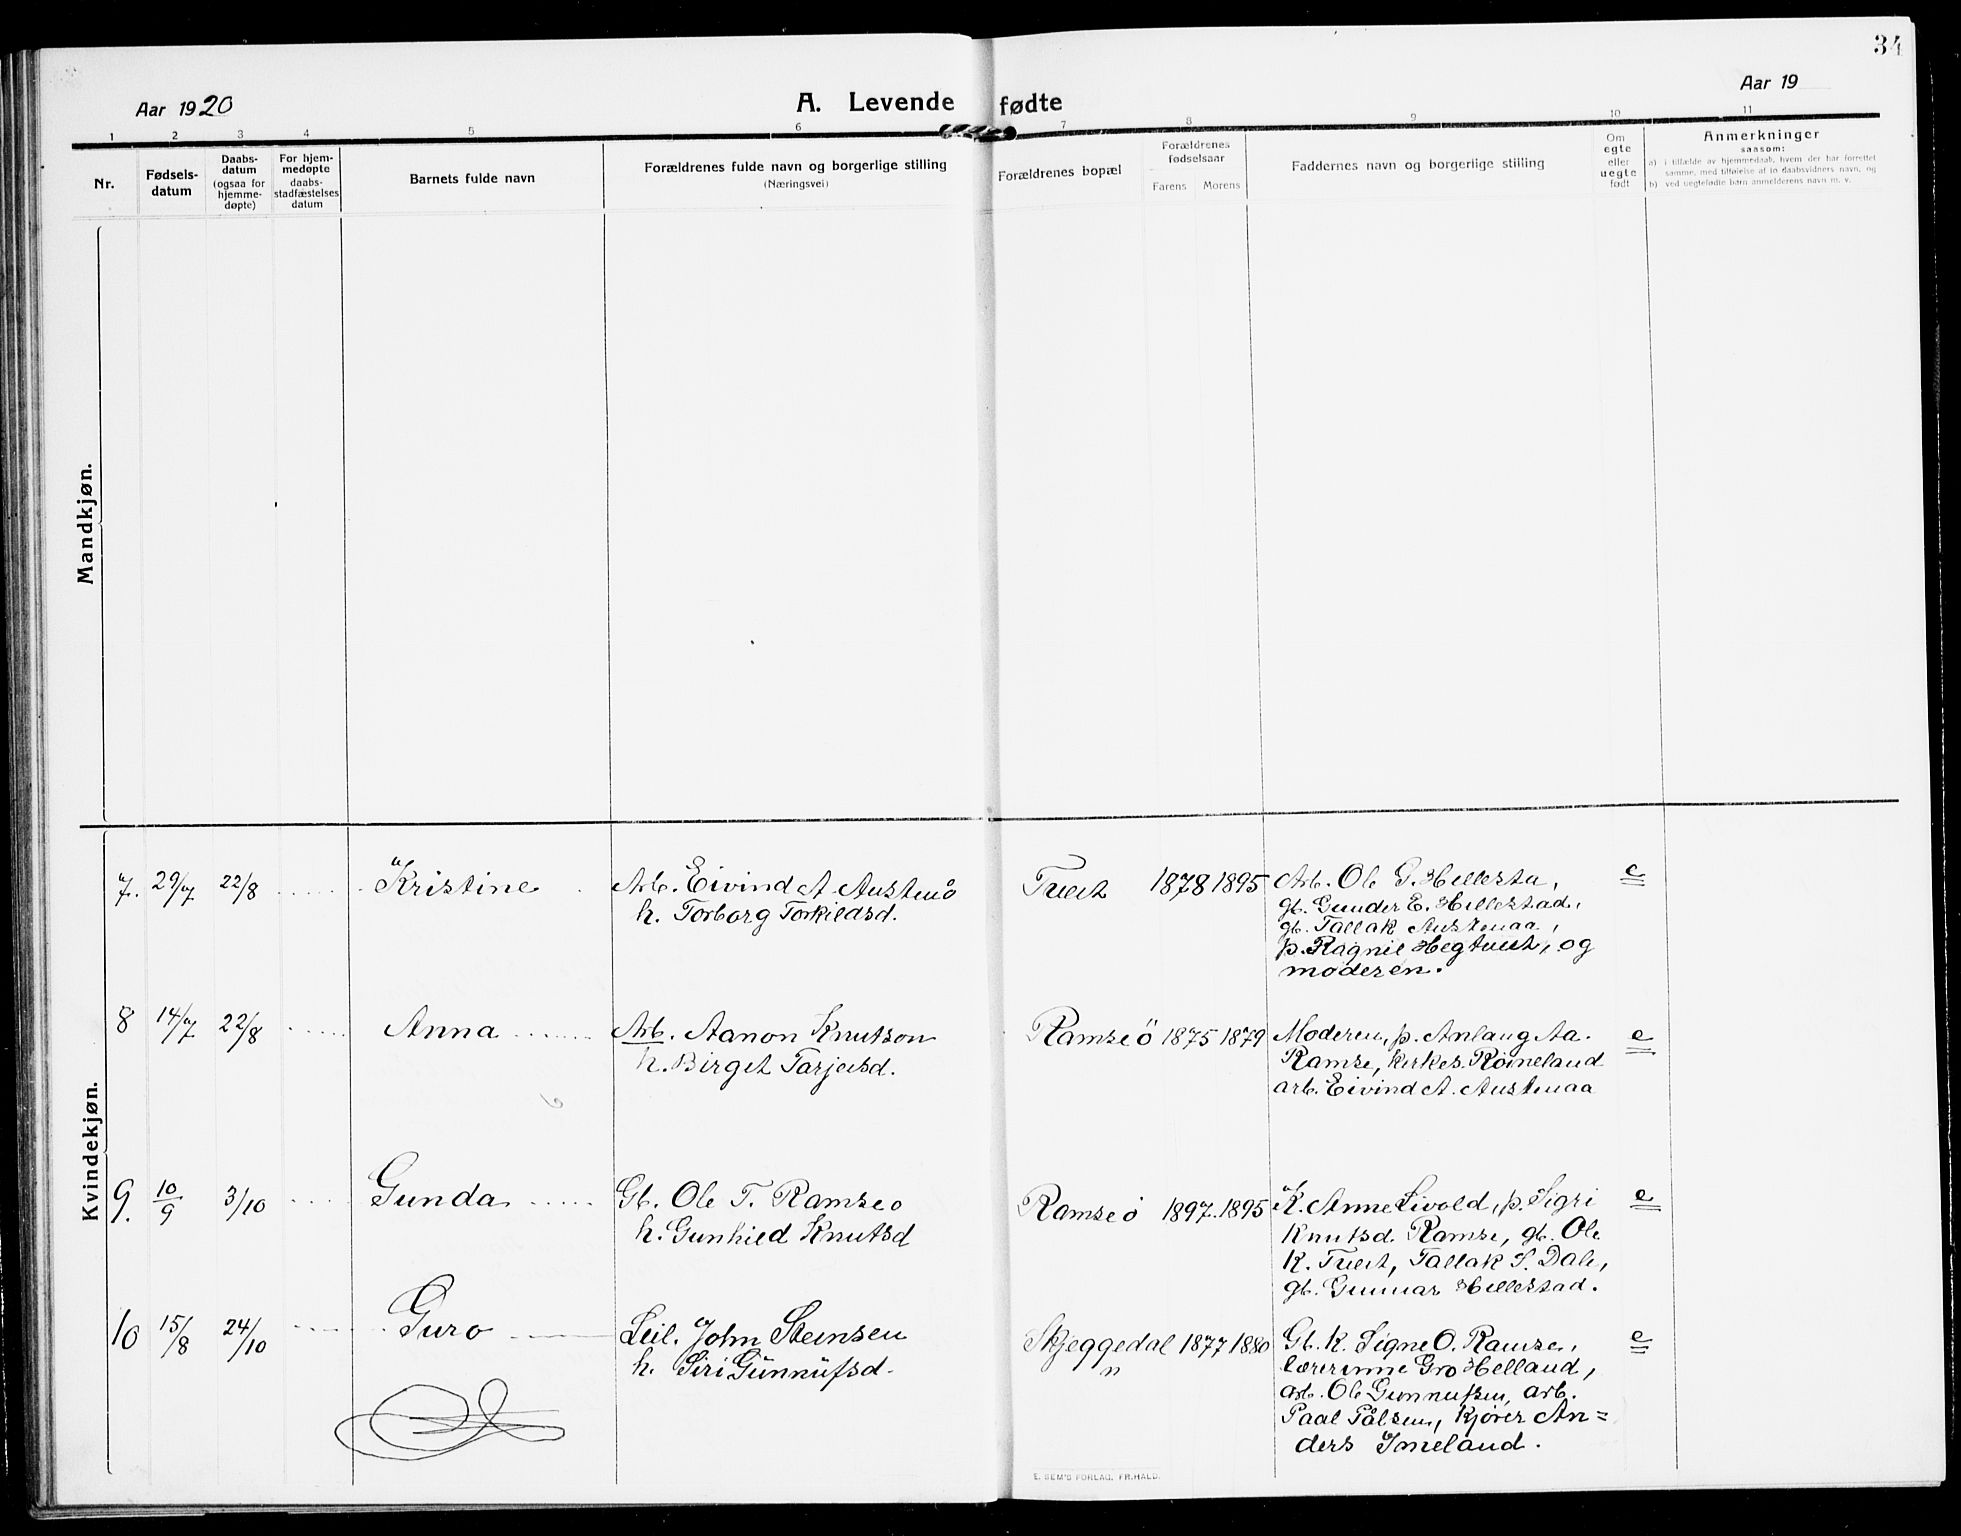 34
Aar 1920
A. Levende fødte
Aar 19
1 2 3 4 5 6 7 8 9 10 11
Nr.
Fødsels-
datum
Daabs-
datum
(ogsaa for
hjemme-
døpte)
For hjem-
medøpte
daabs-
stadfæstelses
datum
Barnets fulde navn
Forældrenes fulde navn og borgerlige stilling
(Næringsvei)
Forældrenes bopæl
Forældrenes
fødselsaar
Farens Morens
Faddernes navn og borgerlige stilling
Om
egte
eller
uegte
født
Anmerkninger
saasom:
a) i tilfælde av hjemmedaab, hvem der har forrettet
samme, med tilføielse af to daabsvidners navn, og
b) ved uegtefødte barn anmelderens navn m. v.
Mandkjøn.
Kvindekjøn.
7. 29/7 22/8 Kristine
Arb. Eivind A Austenå
h. Torborg Torkildsd.
Tveit 1878 1895
Arb. Ole G. Hillesta,
gb. Gunder E. Hillestad,
gb. Tallak Austenaa,
p. Ragnil Hegtveit, og
moderen.
e
8 14/7 22/8 Anna
Arb. Aanon Knutson
h. Birget Tarjeisd.
Ramseö 1875 1879
Moderen, p. Anlaug Aa.
Ramse, kirkes. Röineland
arb. Eivind A. Austenaa
e
9. 10/9 3/10 Gunda
Gb. Ole T. Ramseo
h. Gunhild Knutsd
Ramseö 1897. 1895
K. Anne Livold, p. Sigri
Knutsd Ramse, gb. Ole
K. Tveit, Tallak S. Dale,
gb. Gunnar Hillestad.
e
10 15/8 24/10 Guro
Leil. John Steinsen
h. Siri Gunnufsd.
Skjeggedal 1877 1880
n
Gb. K. Signe O. Ramse,
lærerinne Gro Helland,
arb. Ole Gunnufsen, arb.
Paal Pålsen, kjører An=
ders Imeland.
e
E. SEM'S FORLAG, FR.HALD.